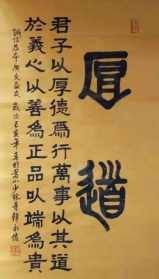 厚道
君子以厚德為行萬事以其道
於義心以善為正品以端為貴